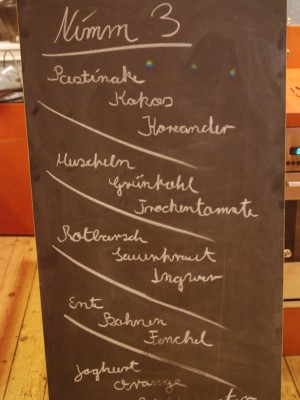 Nimm 3
Pastinake
Kokos
Koreander
Muscheln
Grünkohl
Trockentomate
Rotbarsch
Sauerkraut
Ingwer
Ente
Bohnen
Fenchel
Joghurt
Orange